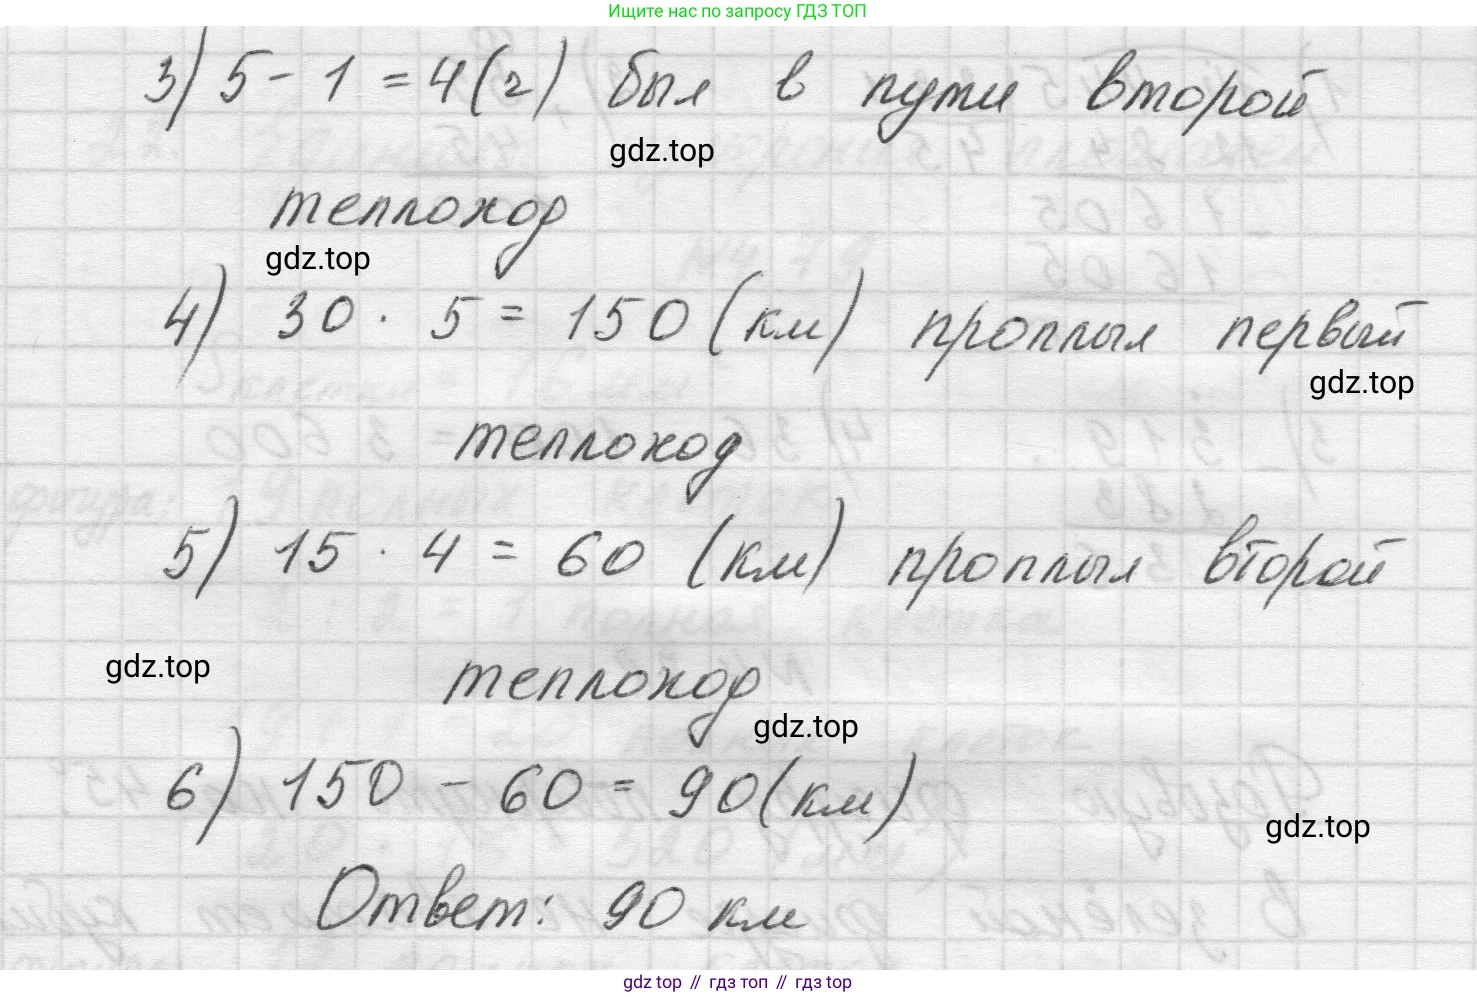 Ищите нас по запросу ГДЗ ТОП
3) 5 - 1 = 4 (г) был в пути второй
gdz.top
теплоход
gdz.top
4) 30 · 5 = 150 (км) проплыл первый
gdz.top
теплоход
5) 15 · 4 = 60 (км) проплыл второй
gdz.top
теплоход
gdz.top
6) 150 - 60 = 90 (км)
gdz.top
Ответ: 90 км
gdz top // гдз топ // гдз top